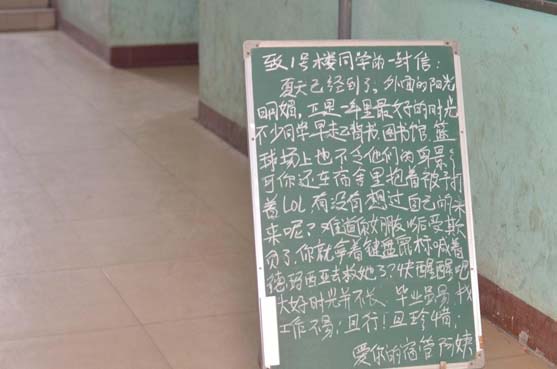 致1号楼同学的一封信:
夏天已经到了,外面的阳光
明媚,正是一年里最好的时光
不少同学早起背书图书馆,篮
球场上也不乏他们的身影,
可你还在宿舍里抱着被子打
着LOL有没有想过自己的未
来呢?难道你放假以后受欺
负了,你就拿着键盘鼠标喊着
德玛西亚去救她了?快醒醒吧
大好时光并不长,毕业易,找
工作不易;且行!且珍惜;
爱你的宿管阿姨